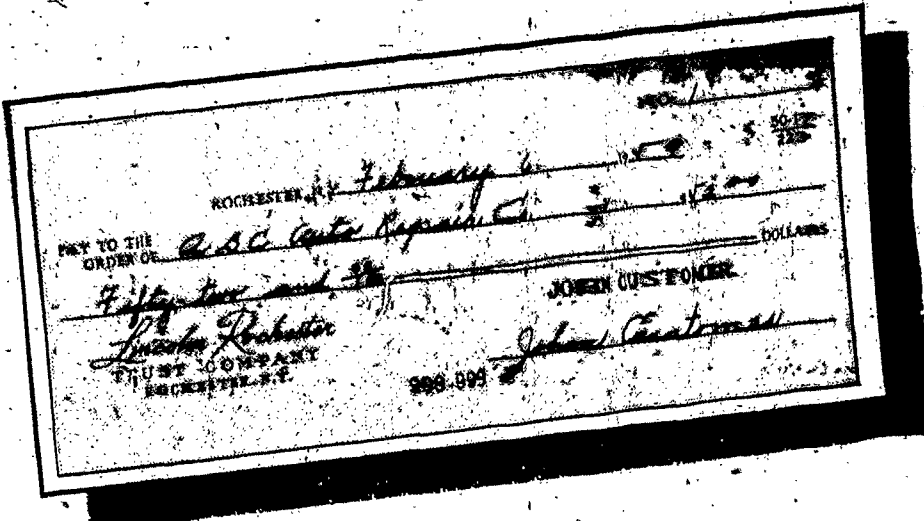 NO. 1
ROCHESTER, N.Y. February 6 19
$ 50-
PAY TO THE
ORDER OF ABC Auto Repair Co. $ 52.00
Fifty-two and DOLLARS
JOHN CUSTOMER
Lincoln Rochester
TRUST COMPANY
ROCHESTER, N.Y.
999-999 John Customer